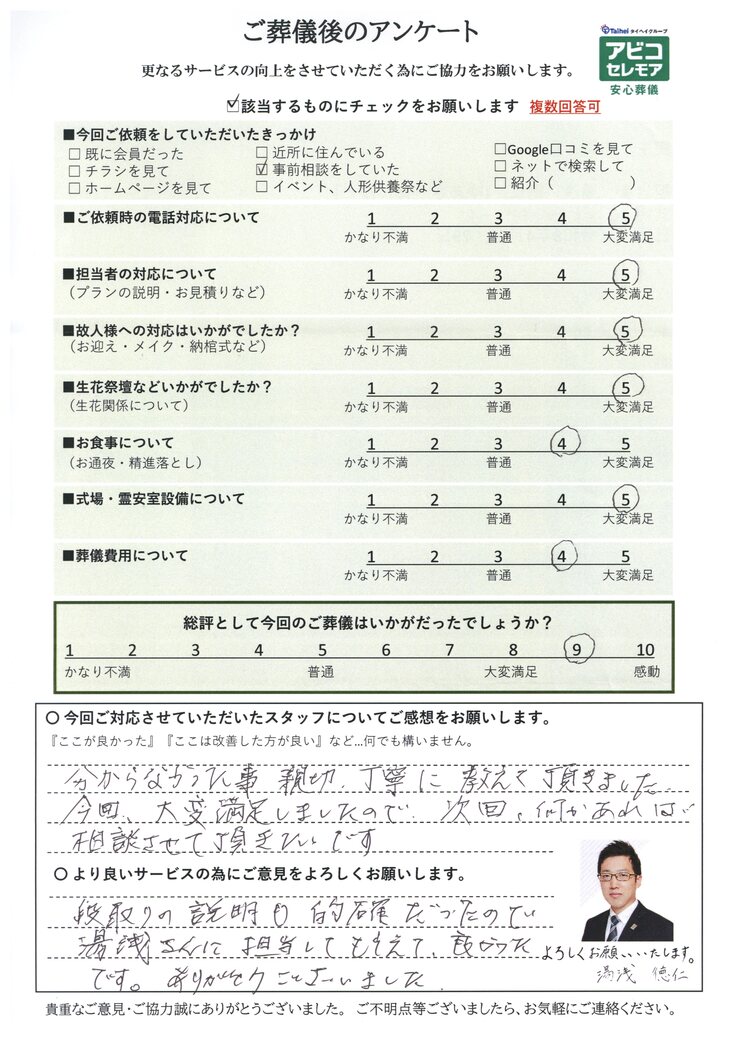 ご葬儀後のアンケート
Taihei タイヘイグループ
アビコ
セレモア
安心葬儀
更なるサービスの向上をさせていただく為にご協力をお願いします。
☑該当するものにチェックをお願いします 複数回答可
■今回ご依頼をしていただいたきっかけ
□ 既に会員だった □ 近所に住んでいる □Google口コミを見て
□ チラシを見て ☑ 事前相談をしていた □ ネットで検索して
□ ホームページを見て □ イベント、人形供養祭など □ 紹介（ ）
■ご依頼時の電話対応について 1 2 3 4 5
かなり不満 普通 大変満足
■担当者の対応について 1 2 3 4 5
（プランの説明・お見積りなど） かなり不満 普通 大変満足
■故人様への対応はいかがでしたか？ 1 2 3 4 5
（お迎え・メイク・納棺式など） かなり不満 普通 大変満足
■生花祭壇などいかがでしたか？ 1 2 3 4 5
（生花関係について） かなり不満 普通 大変満足
■お食事について 1 2 3 4 5
（お通夜・精進落とし） かなり不満 普通 大変満足
■式場・霊安室設備について 1 2 3 4 5
かなり不満 普通 大変満足
■葬儀費用について 1 2 3 4 5
かなり不満 普通 大変満足
総評として今回のご葬儀はいかがだったでしょうか？
1 2 3 4 5 6 7 8 9 10
かなり不満 普通 大変満足 感動
〇 今回ご対応させていただいたスタッフについてご感想をお願いします。
『ここが良かった』『ここは改善した方が良い』など…何でも構いません。
分からなかった事 親切、丁寧に 教えて頂きました。
今回、大変満足しましたので、次回、何かあれば
相談させて頂きたいです
〇 より良いサービスの為にご意見をよろしくお願いします。
段取りの説明も的確だったので
湯浅さんに担当してもらえて、良かった
です。ありがとうございました。
よろしくお願いいたします。
湯浅 徳仁
貴重なご意見・ご協力誠にありがとうございました。 ご不明点等ございましたら、お気軽にご連絡ください。